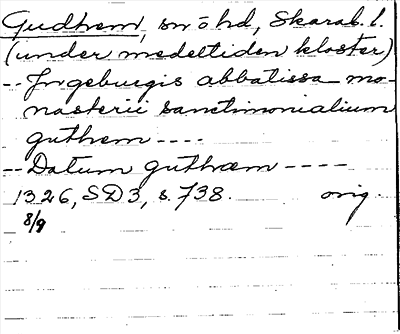 Gudhem, sn o hd, Skarab. l.
(under medeltiden kloster)
-- Jngeburgis abbatissa mo-
nasterii sanctimonialium
guthem ----
-- Datum guthæm ----
1326, SD3, s. 738. orig.
8/9